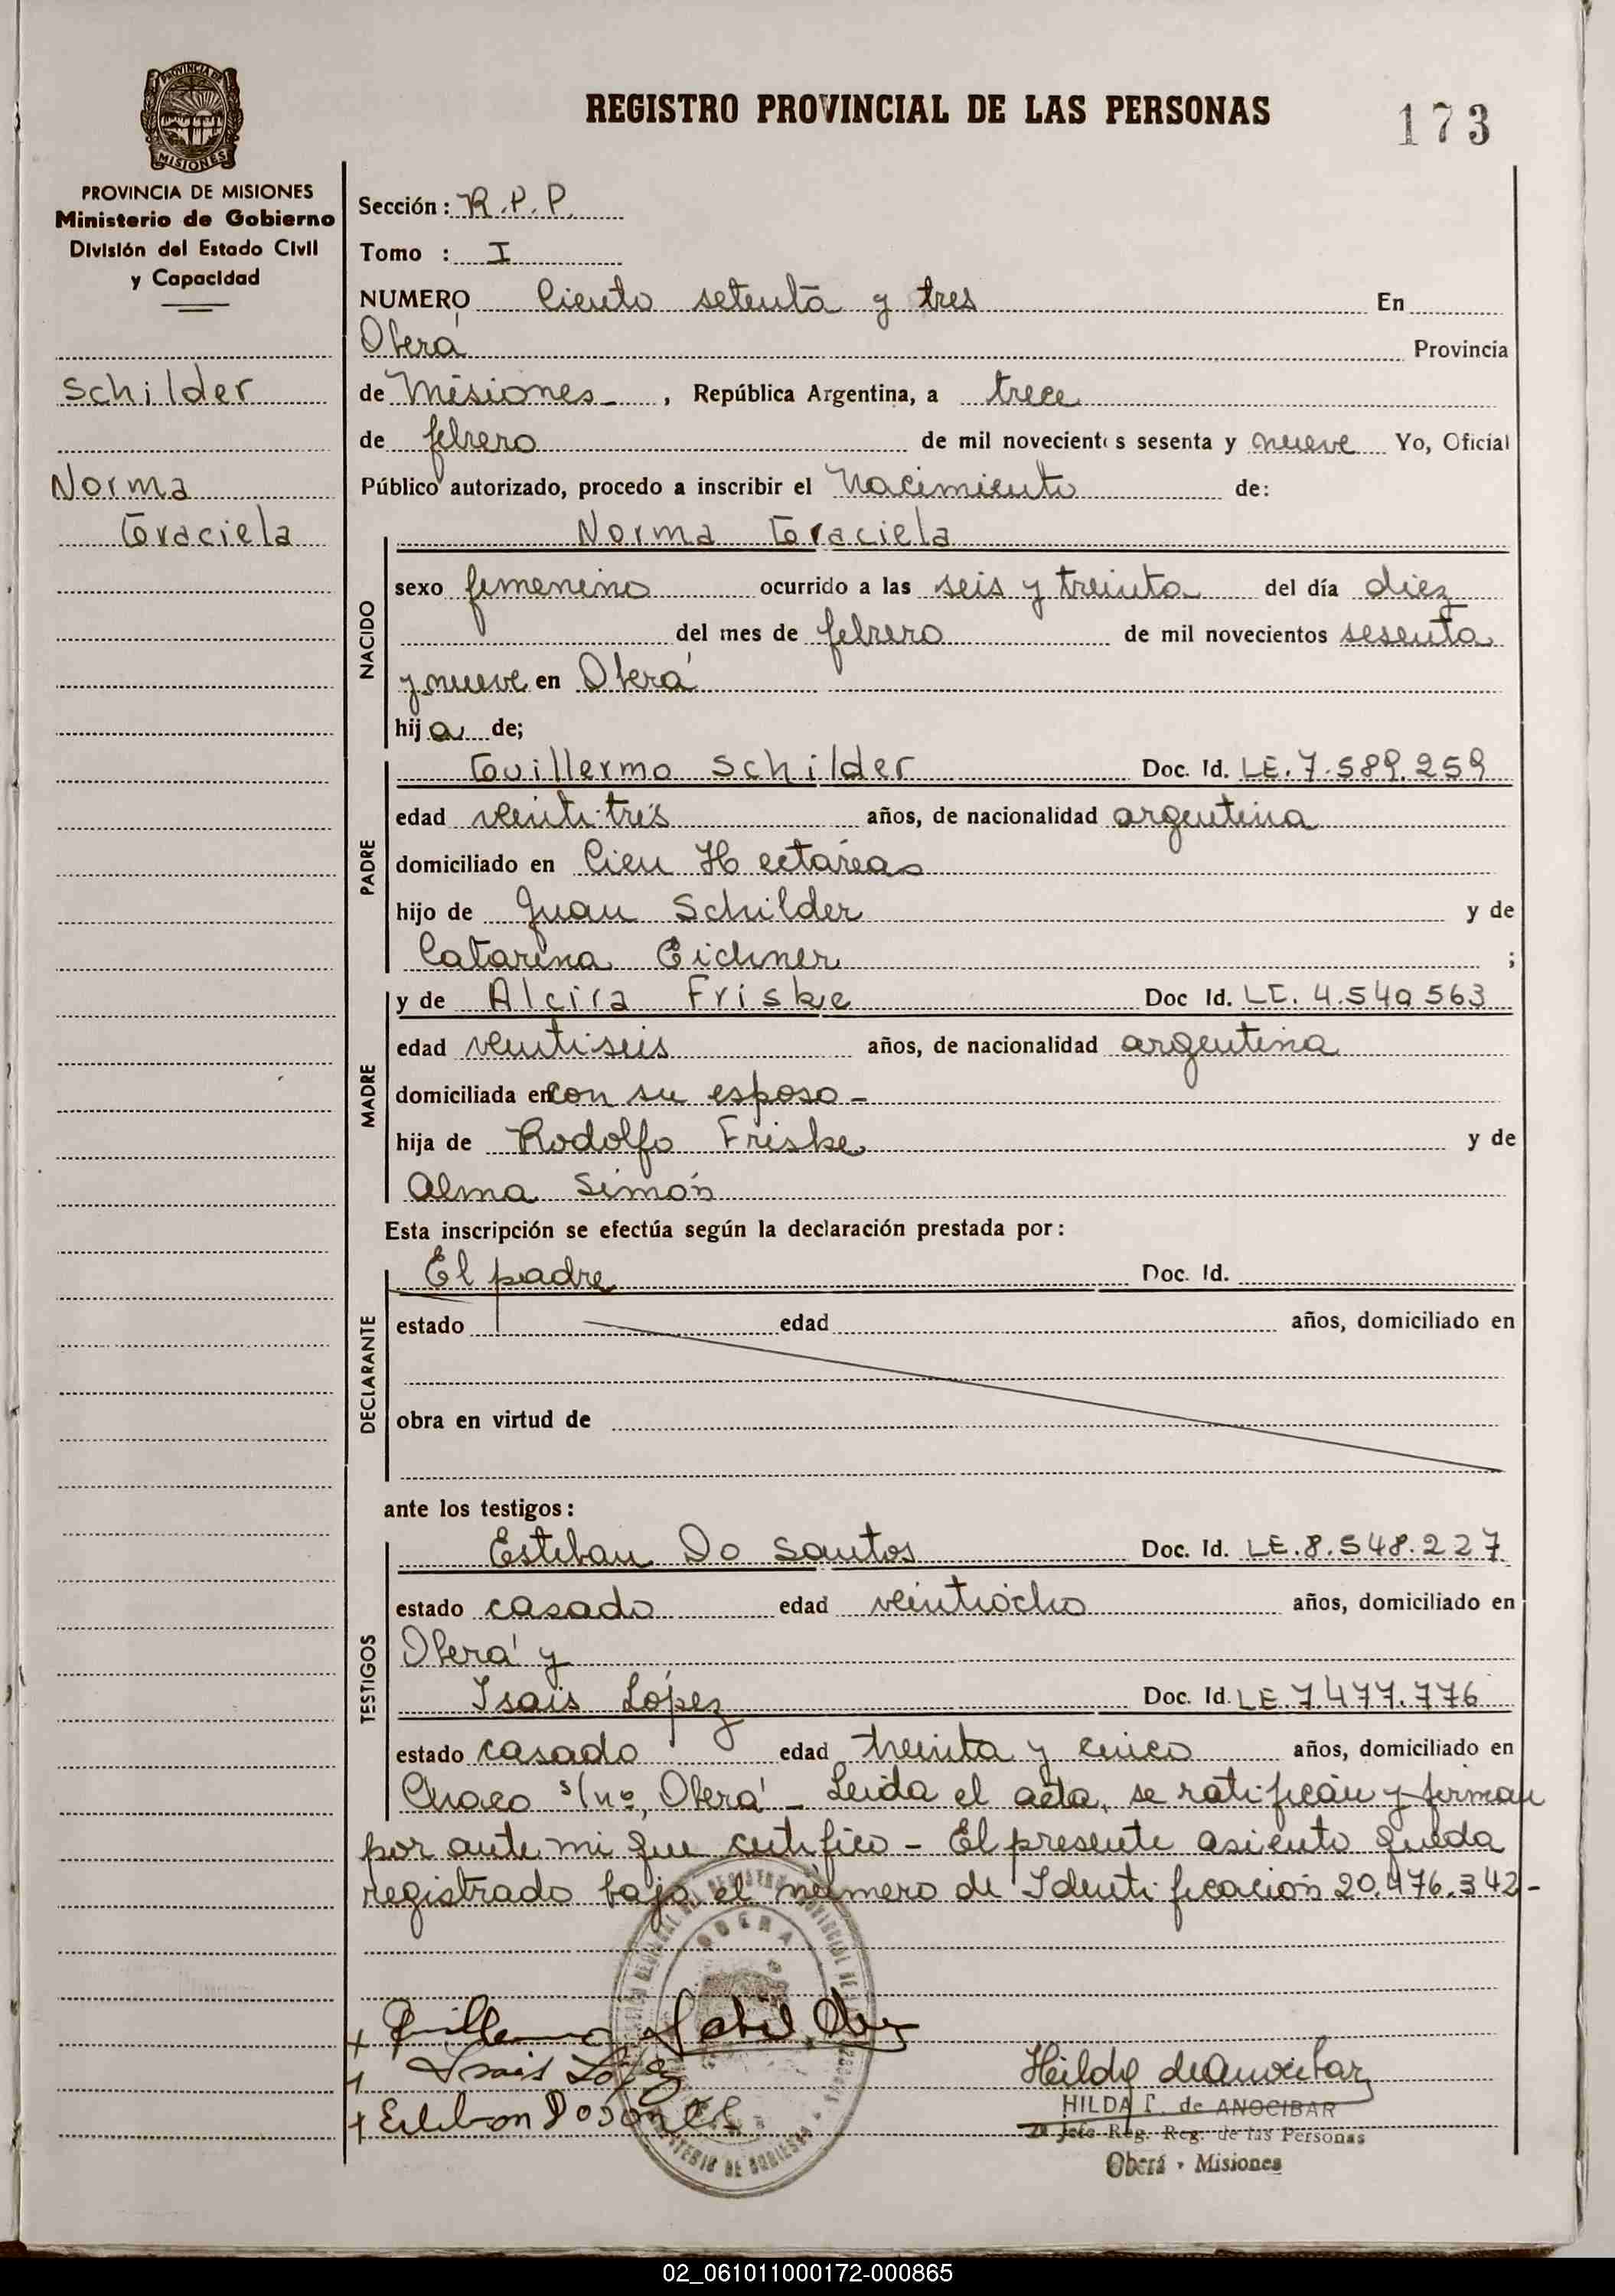 REGISTRO PROVINCIAL DE LAS PERSONAS
173
PROVINCIA DE MISIONES
Ministerio de Gobierno
División del Estado Civil
y Capacidad
Schilder
Norma
Graciela
Sección: R.P.P.
Tomo : I
NUMERO Ciento setenta y tres En
Oberá Provincia
de Misiones , República Argentina, a trece
de febrero de mil novecientos sesenta y nueve Yo, Oficial
Público autorizado, procedo a inscribir el Nacimiento de:
Norma Graciela
NACIDO
sexo femenino ocurrido a las seis y treinta del día diez
del mes de febrero de mil novecientos sesenta
y nueve en Oberá
hija de;
PADRE
Guillermo Schilder Doc. Id. LE. 7.589.259
edad veintitrés años, de nacionalidad argentina
domiciliado en Cien Hectáreas
hijo de Juan Schilder y de
Catarina Eichner ;
MADRE
y de Alcira Friske Doc Id. LC. 4.540.563
edad ventiseis años, de nacionalidad argentina
domiciliada en con su esposo -
hija de Rodolfo Friske y de
Alma Simón
Esta inscripción se efectúa según la declaración prestada por:
DECLARANTE
El padre Doc. Id.
estado edad años, domiciliado en
obra en virtud de
ante los testigos:
TESTIGOS
Esteban Do Santos Doc. Id. LE.8.548.227
estado casado edad veintiocho años, domiciliado en
Oberá y
Isais López Doc. Id. LE 7477.776
estado casado edad treinta y cinco años, domiciliado en
Chaco s/nº, Oberá - Leida el acta, se ratifican y firman
por ante mi que certifico - El presente asiento queda
registrado bajo el número de Identificación 20.476.342-
OBERA
Guillermo
Isais López
HILDA de ANOCIBAR
Jefe Reg. Reg. de las Personas
Oberá - Misiones
02_061011000172-000865